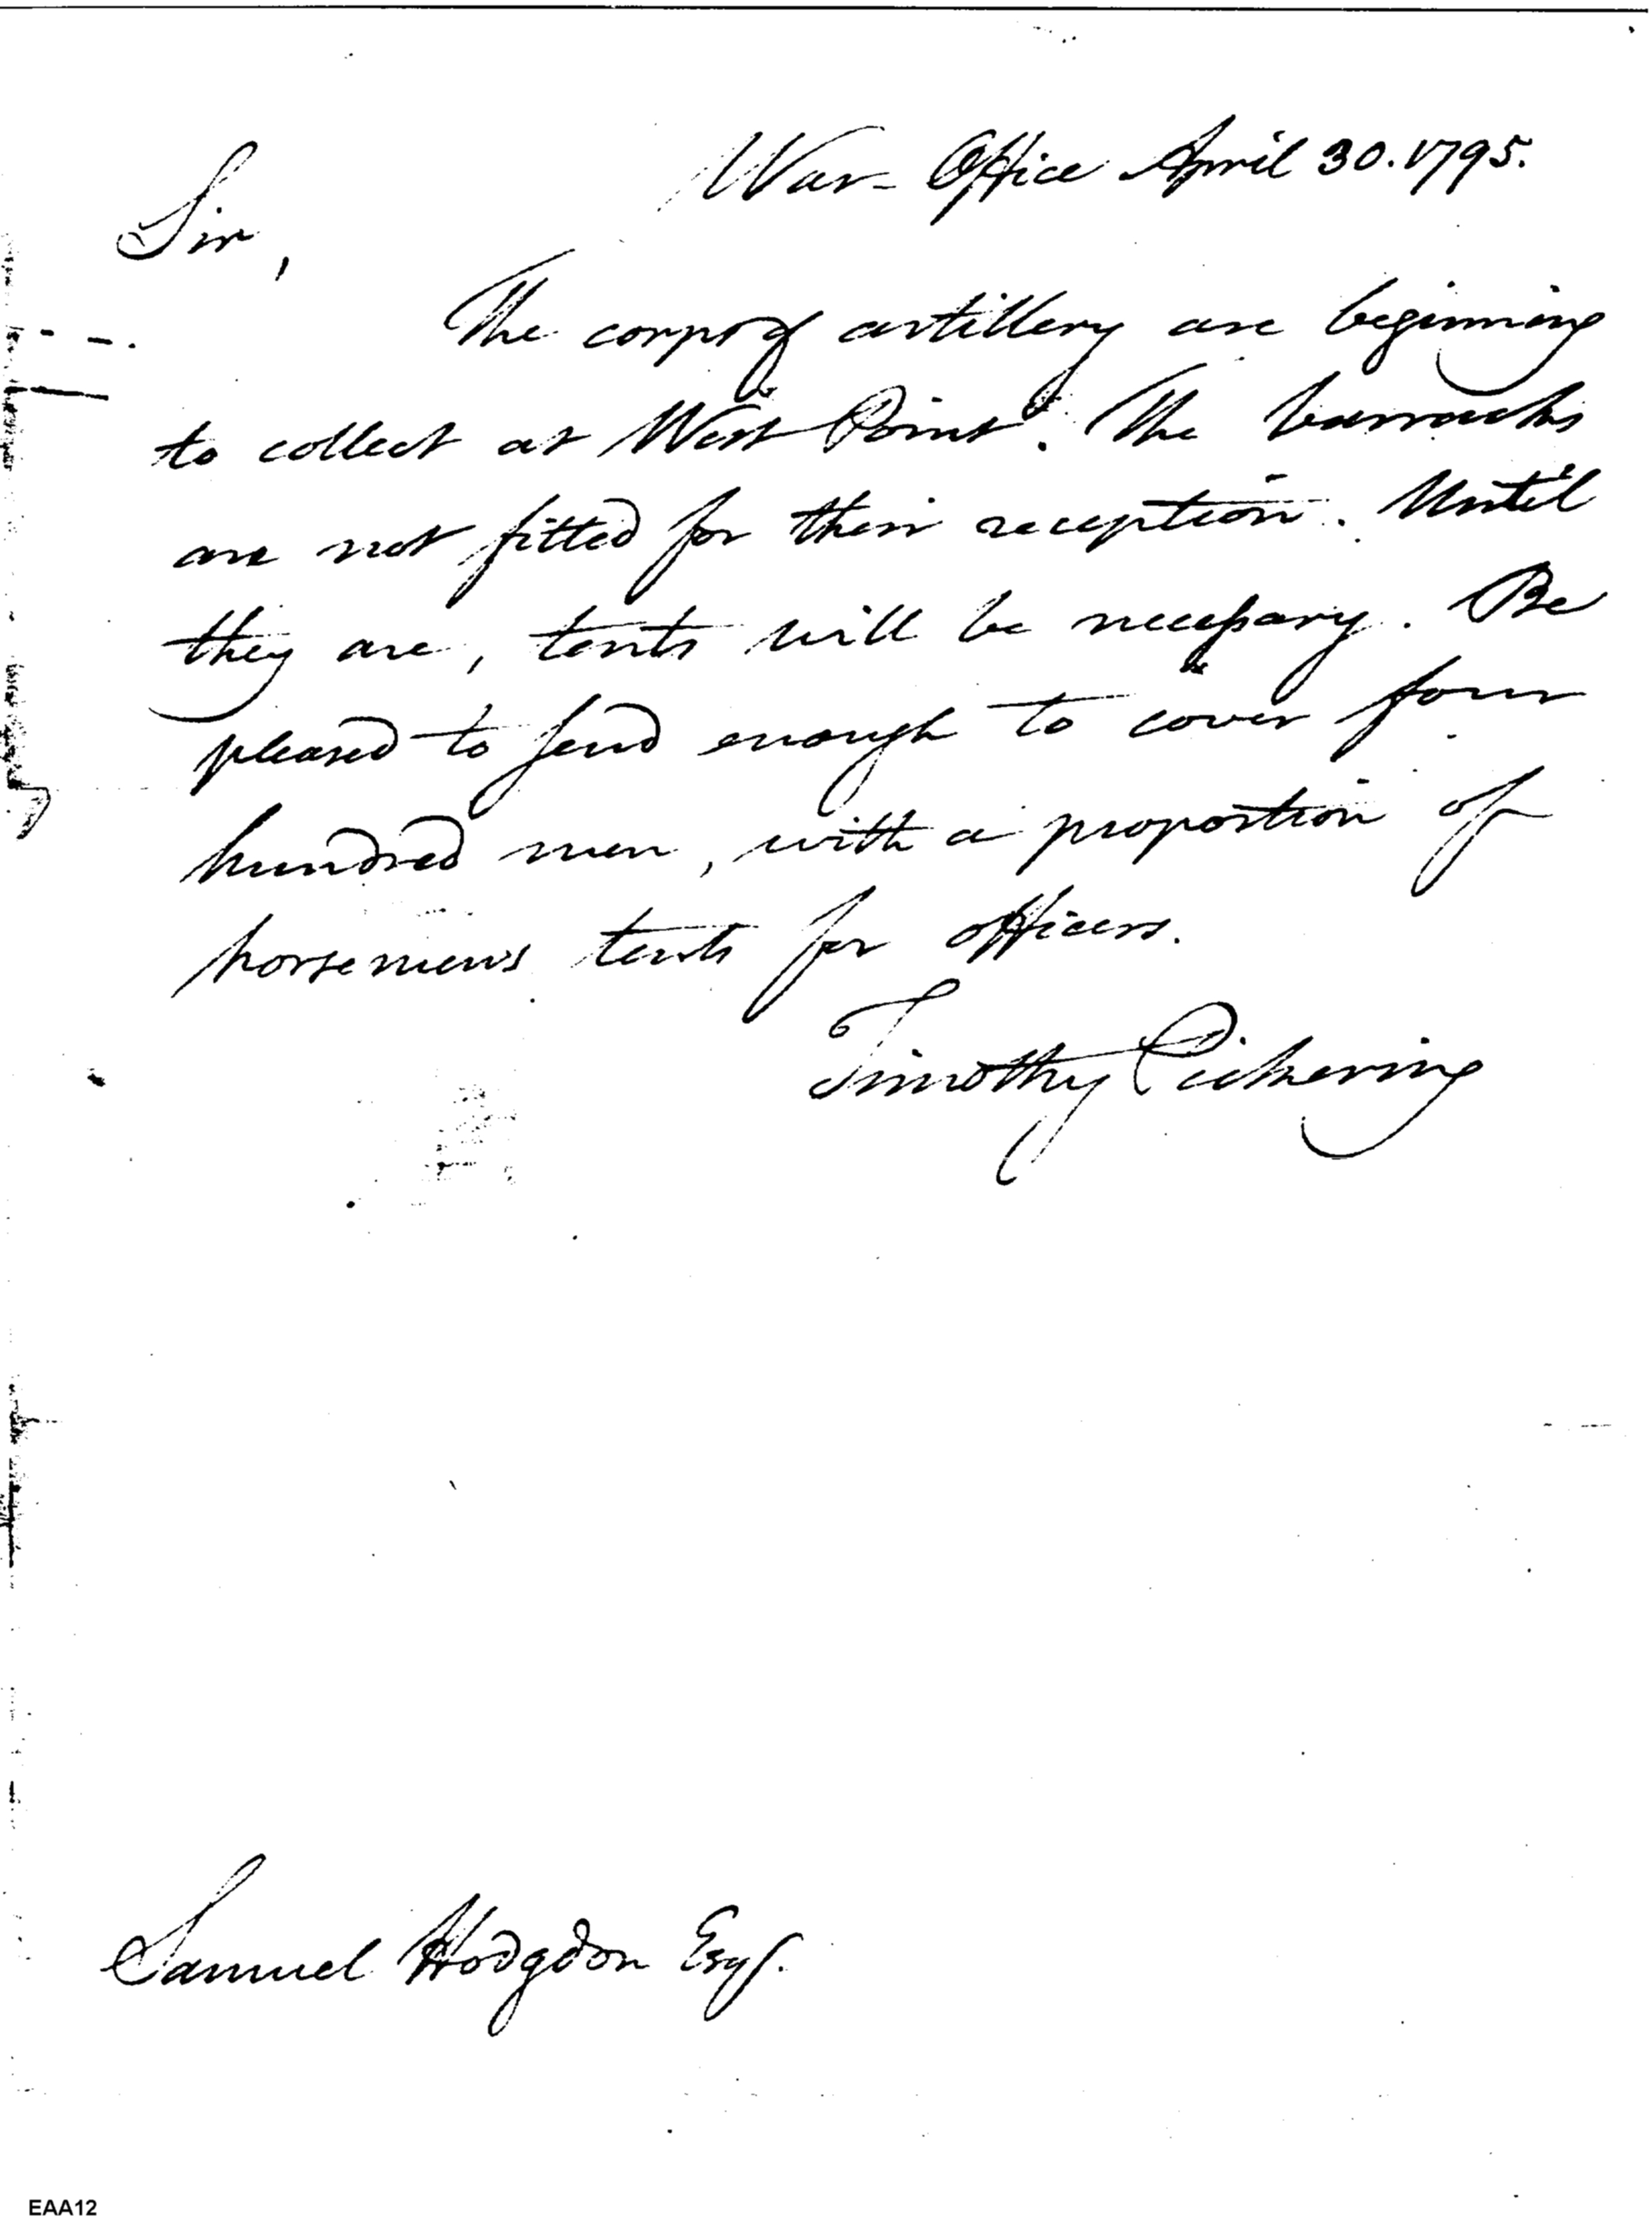 War-Office April 30. 1795.
Sir,
The corps of artillery are beginning
to collect at West Point. The barracks
are not fitted for their reception. Until
they are, tents will be necessary. Be
pleased to send enough to cover four
hundred men, with a proportion of
horsemen's tents for officers.
Timothy Pickering
Samuel Hodgdon Esq.
EAA12